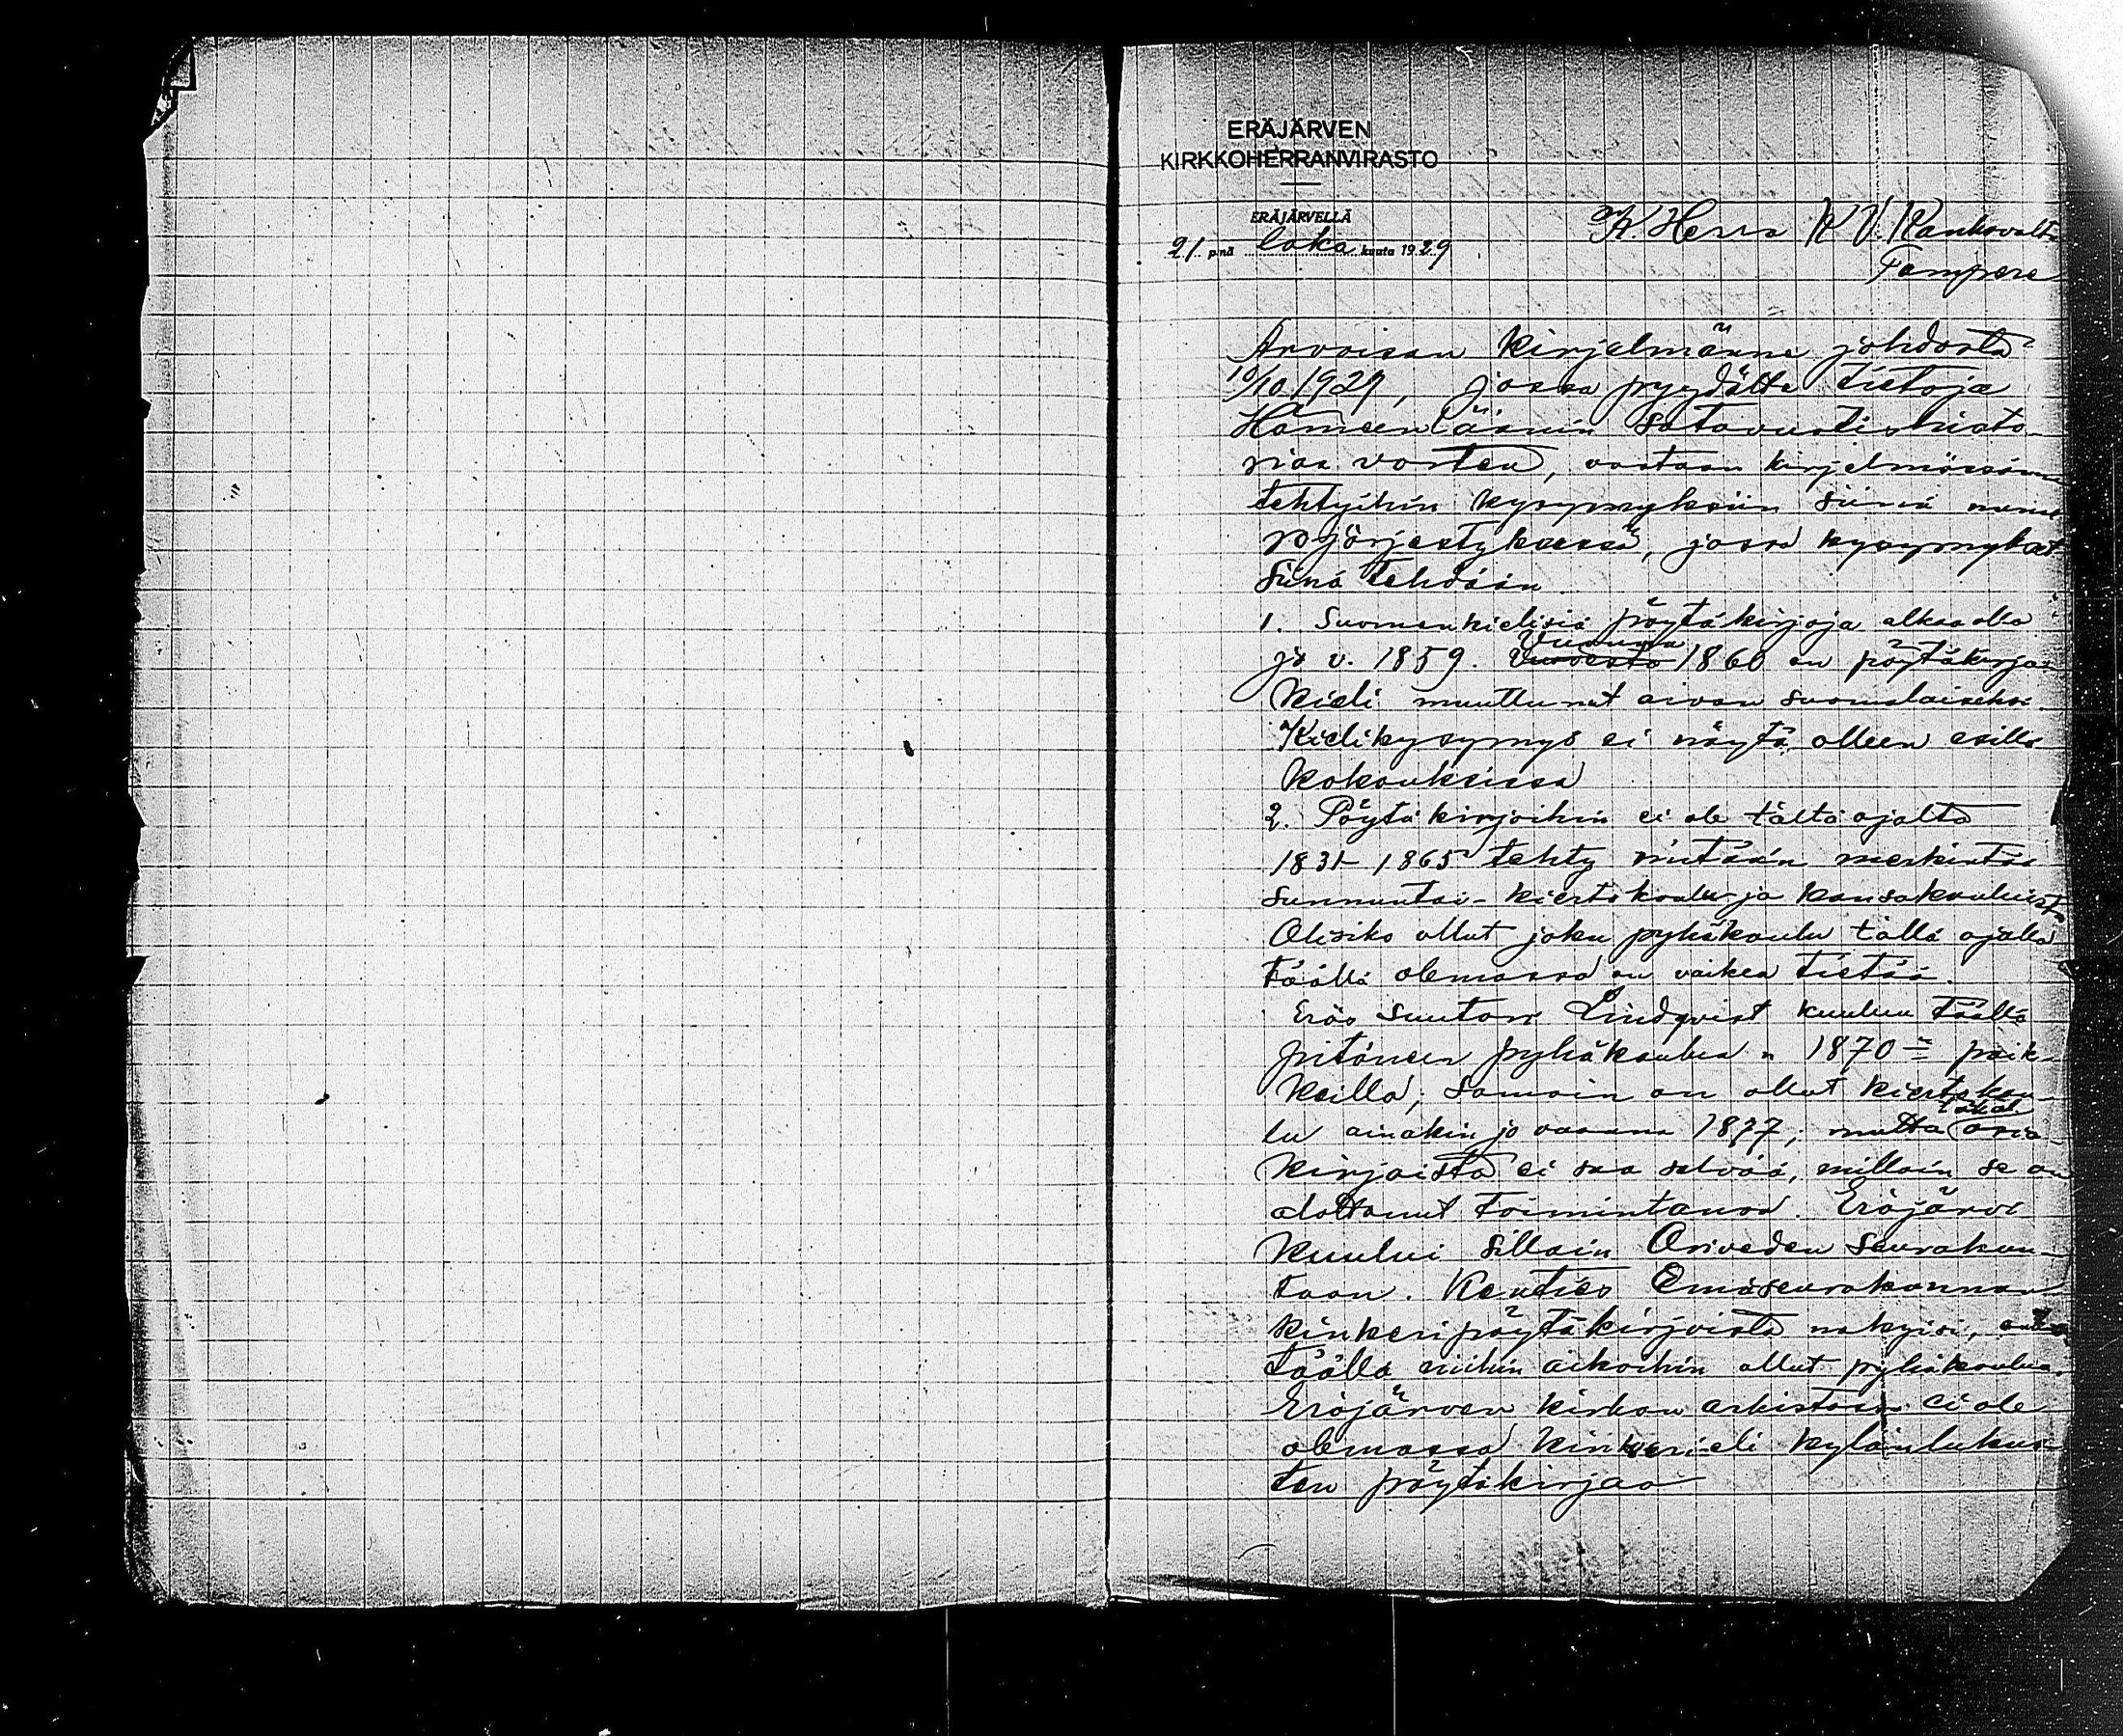 ERÄJÄRVEN
KIRKKOHERRANVIRASTO
ERÄJÄRVELLÄ
21 p:nä loka kuuta 1929
K. Herra K V. Kaukovalta
Tampere
Arvoisan kirjelmänne johdosta
10/10 1929, jossa pyydätte tietoja
Hämeenläänin satavuotishisto-
riaa varten, vastaan kirjelmässänne
tehtyihin kysymyksiin siinä nume-
rojärjestyksessä, jossa kysymykset
siinä tehdään.
1. Suomenkielisiä pöytäkirjoja alkaa olla
jo v. 1859. Vuonna 1860 on pöytäkirja-
kieli muuttunut aivan suomalaiseksi.
Kielikysymys ei näytä olleen esillä
kokouksissa
2. Pöytäkirjoihin ei ole tältä ajalta
1831-1865 tehty mitään merkintää
sunnuntai- kiertokoulu- ja kansakouluista
Olisiko ollut joku pyhäkoulu tällä ajalla
täällä olemassa on vaikea tietää.
Eräs suutari Lindqvist kuuluu täällä
pitäneen pyhäkoulua n 1870 paik-
keilla; samoin on ollut kiertokou-
lu ainakin jo vuonna 1877; mutta asia-
kirjoista ei saa selvää, milloin se on
alottanut toimintansa. Eräjärvi
kuului silloin Oriveden seurakun-
taan. Kenties Emäseurakunnan
kinkeripöytäkirjoista näkyisi, onko
täällä niihin aikoihin ollut pyhäkoulua.
Eräjärven kirkon arkistossa ei ole
olemassa kinkeri- eli kylänluku-
ten pöytäkirjaa